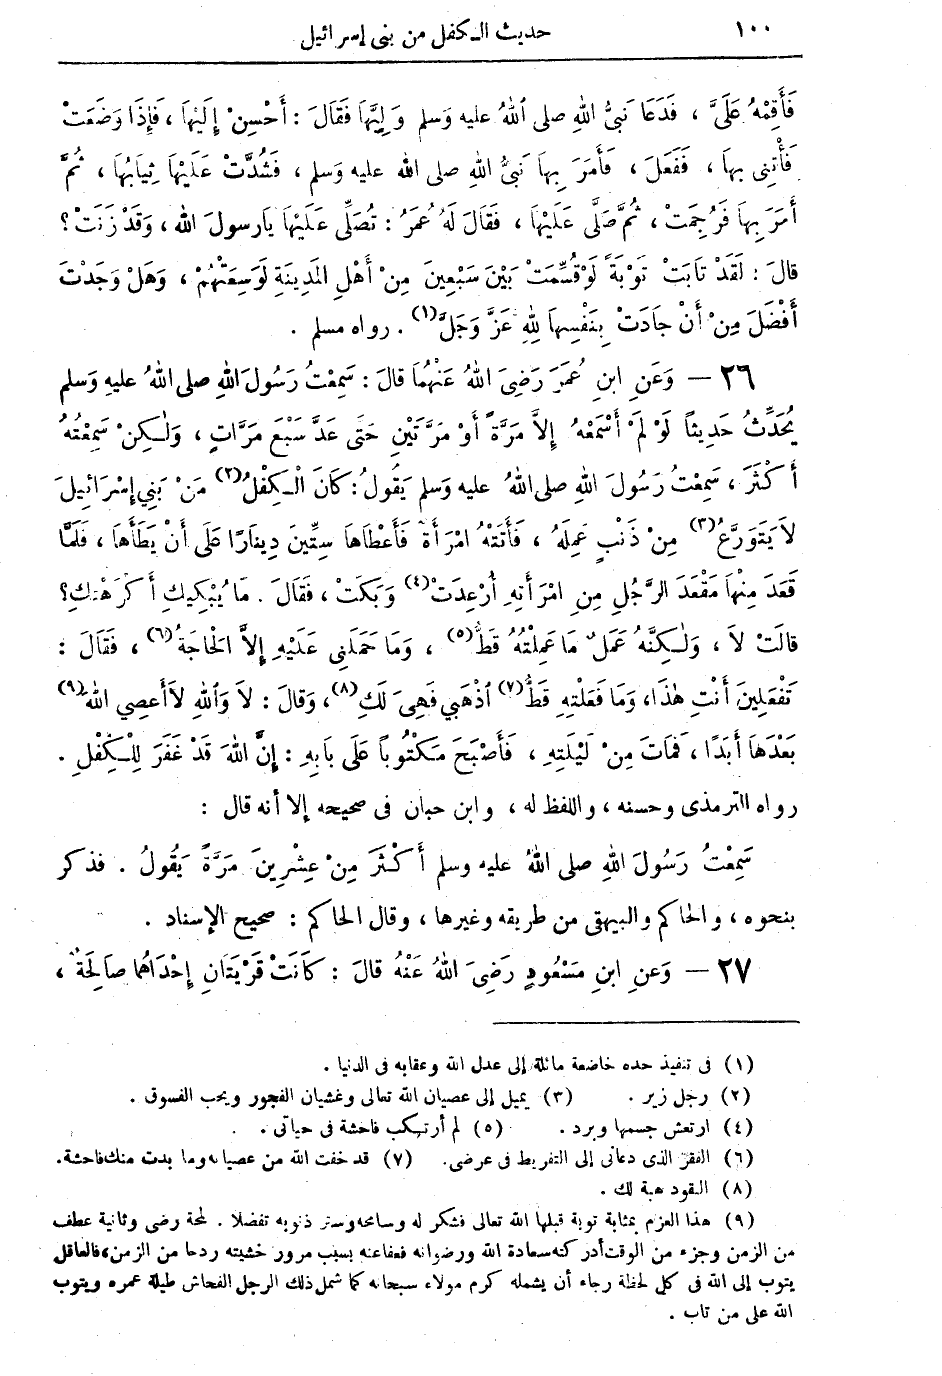 ١٠٠ حديث الكفل من بنى إسرائيل
فَأَقِمْهُ عَلَىَّ ، فَدَعَا نَبىُّ اللهِ صلى اللهُ عليه وَسلم وَلِيَّهَا فَقَالَ : أَحْسِنْ إِلَيْهَا ، فَإِذَا وَضَعَتْ
فَأْتِنِى بِهَا ، فَفَعَلَ ، فَأَمَرَ بِهَا نَبىُّ اللهِ صلى الله عليه وَسلم ، فَشُدَّتْ عَلَيْهَا ثِيَابُهَا ، ثُمَّ
أَمَرَ بِهَا فَرُجِمَتْ ، ثُمَّ صَلَّى عَلَيْهَا ، فَقَالَ لَهُ عُمَرُ : تُصَلِّى عَلَيْهَا يَارسولَ الله ، وَقَدْ زَنَتْ ؟
قالَ : لَقَدْ تَابَتْ تَوْبَةً لَوْ قُسِّمَتْ بَيْنَ سَبْعِينَ مِنْ أَهْلِ المَدِينَةِ لَوَسِعَتْهُمْ ، وَهَلْ وَجَدْتَ
أَفْضَلَ مِنْ أَنْ جَادَتْ بِنَفْسِهَا لِلهِ عَزَّ وَجَلَّ (١) . رواه مسلم .
٢٦ — وَعَنِ ابنِ عُمَرَ رَضِىَ اللهُ عَنْهُمَا قالَ : سَمِعْتُ رَسُولَ اللهِ صلى اللهُ عليهِ وَسلم
يُحَدِّثُ حَدِيثاً لَوْ لَمْ أَسْمَعْهُ إِلاَّ مَرَّةً أَوْ مَرَّتَيْنِ حَتَى عَدَّ سَبْعَ مَرَّاتٍ ، وَلٰكِنْ سَمِعْتُهُ
أَكْثَرَ ، سَمِعْتُ رَسُولَ اللهِ صلى اللهُ عليه وَسلم يَقُولُ : كَانَ الْكِفْلُ (٢) مَنْ بَنِي إِسْرَائِيلَ
لاَ يَتَوَرَّعُ (٣) مِنْ ذَنْبٍ عَمِلَهُ ، فَأَتَتْهُ امْرَأَةٌ فَأَعْطَاهَا سِتِّينَ دِينَارًا عَلَى أَنْ يَطَأَهَا ، فَلَمَّا
قَعَدَ مِنْهَا مَقْعَدَ الرَّجُلِ مِنِ امْرَأَتِهِ أُرْعِدَتْ (٤) وَبَكَتْ ، فَقَالَ . مَا يُبْكِيكِ أَكْرَهْتُكِ ؟
قالَتْ لاَ ، وَلٰكِنَّهُ عَمَلٌ مَا عَمِلْتُهُ قَطُّ (٥) ، وَمَا حَمَلَنِى عَلَيْهِ إِلاَّ الْحَاجَةُ (٦) ، فَقَالَ :
تَفْعَلِينَ أَنْتِ هٰذَا ، وَمَا فَعَلْتِهِ قَطُّ (٧) اُذْهَبِي فَهِىَ لَكِ (٨) ، وَقالَ : لاَ وَاللهِ لاَ أَعصِي الله (٩)
بَعْدَهَا أَبَدًا ، فَمَاتَ مِنْ لَيْلَتِهِ ، فَأَصْبَحَ مَكْتُوباً عَلَى بَابِهِ : إِنَّ اللهَ قَدْ غَفَرَ لِلْكِفْلِ .
رواه الترمذى وحسنه ، واللفظ له ، وابن حبان فى صحيحه إلا أنه قال :
سَمِعْتُ رَسُولَ اللهِ صلى اللهُ عليه وسلم أَكْثَرَ مِنْ عِشْرِينَ مَرَّةً يَقُولُ . فذكر
بنحوه ، والحاكم والبيهقى من طريقه وغيرها ، وقال الحاكم : صحيح الإسناد .
٢٧ — وَعَنِ ابنِ مَسْعُودٍ رَضِىَ اللهُ عَنْهُ قالَ : كَانَتْ قَرْيَتَانِ إِحْدَاهُمَا صَالِحَةٌ ،
(١) فى تنفيذ حده خاضعة مائلة إلى عدل الله وعقابه فى الدنيا .
(٢) رجل زير . (٣) يميل إلى عصيان الله تعالى وغشيان الفجور ويحب الفسوق .
(٤) ارتعش جسمها وبرد . (٥) لم أرتكب فاحشة فى حياتى .
(٦) الفقر الذى دعانى إلى التفريط فى عرضى . (٧) قد خفت الله من عصيانه وما بدت منك فاحشة .
(٨) النقود هبة لك .
(٩) هذا العزم بمثابة توبة قبلها الله تعالى فشكر له وسامحه وستر ذنوبه تفضلا . لمحة رضى وثانية عطف
من الزمن وجزء من الوقت أدركته سعادة الله ورضوانه فعفا عنه بسبب مرور خشيته ردحا من الزمن ، فالعاقل
يتوب إلى الله فى كل لحظة رجاء أن يشمله كرم مولاه سبحانه كما شمل ذلك الرجل الفحاش طيلة عمره ويتوب
الله على من تاب .